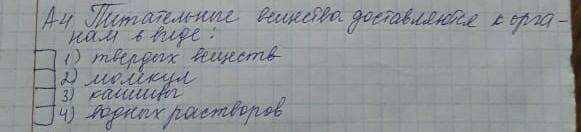 А4. Питательные вещества доставляются к орга-
нам в виде:
1) твердых веществ
2) молекул
3) кашицы
4) водных растворов